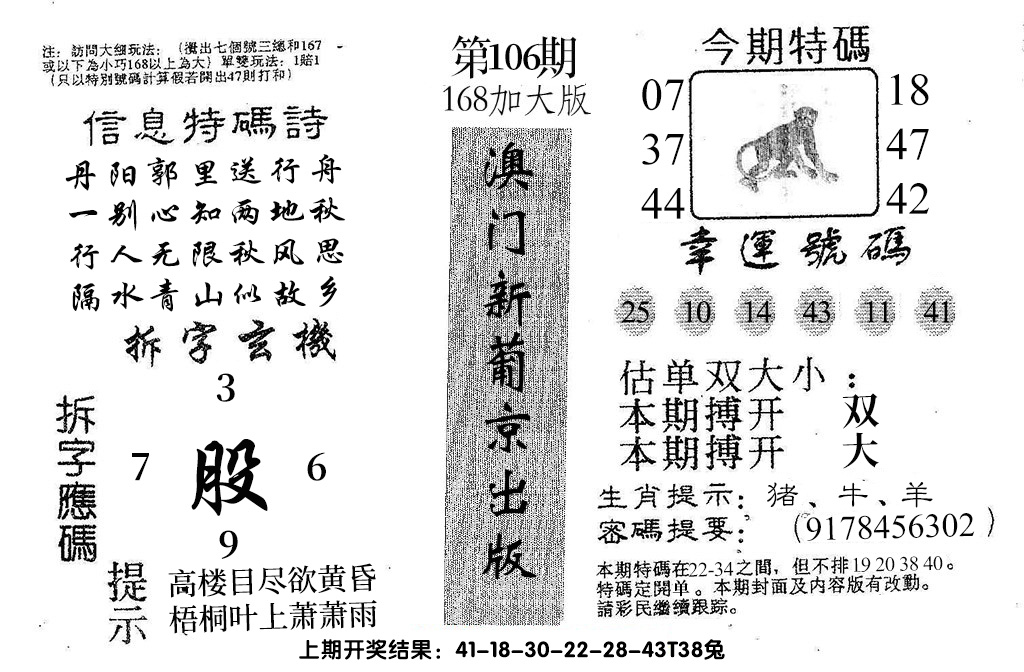 注：訪問大细玩法：（攪出七個號三總和167
或以下為小巧168以上為大）單雙玩法：1賠1
（只以特別號碼計算假若開出47則打和）
信息特碼詩
丹阳郭里送行舟
一别心知两地秋
行人无限秋风思
隔水青山似故乡
拆字玄機
3
拆字應碼
7
股
6
9
提示
高楼目尽欲黄昏
梧桐叶上萧萧雨
第106期
168加大版
澳门新葡京出版
今期特碼
07
18
37
47
44
42
幸運號碼
25 10 14 43 11 41
估单双大小：
本期搏开 双
本期搏开 大
生肖提示：猪、牛、羊
密碼提要：（9178456302）
本期特碼在22-34之間，但不排19 20 38 40。
特碼定開单。本期封面及内容版有改動。
請彩民繼續跟踪。
上期开奖结果：41-18-30-22-28-43T38兔